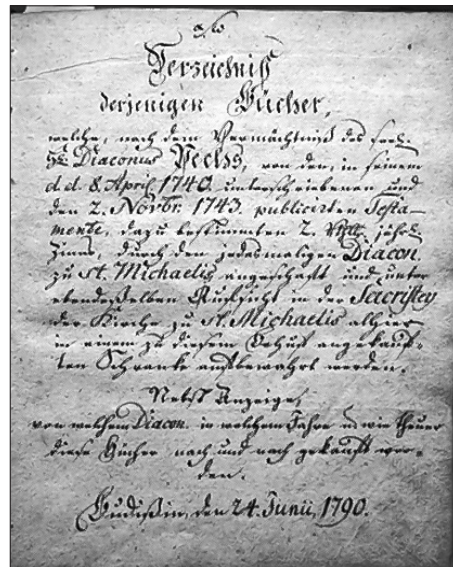 Verzeichniß
derjenigen Bücher,
welche, nach dem Vermächtniß des seel.
H. Diaconus Pechs, von den, in seinem
d. d. 8. April 1740. unterschriebenen und
den 2. Novbr. 1743. publicirten Testa-
mente, dazu bestimmten 2. jährl.
Zinns, durch den jedesmaligen Diacon.
zu St. Michaelis angeschaft und unter
ebendeßelben Aufsicht in der Sacristey
der Kirche zu St. Michaelis alhier
in einem zu diesem Behuf angekauf-
ten Schranke aufbewahrt werden.
Nebst Anzeige,
von welchem Diacon. in welchem Jahre u. wie theuer
diese Bücher nach und nach gekauft wor-
den.
Budißin, den 24. Junii, 1790.